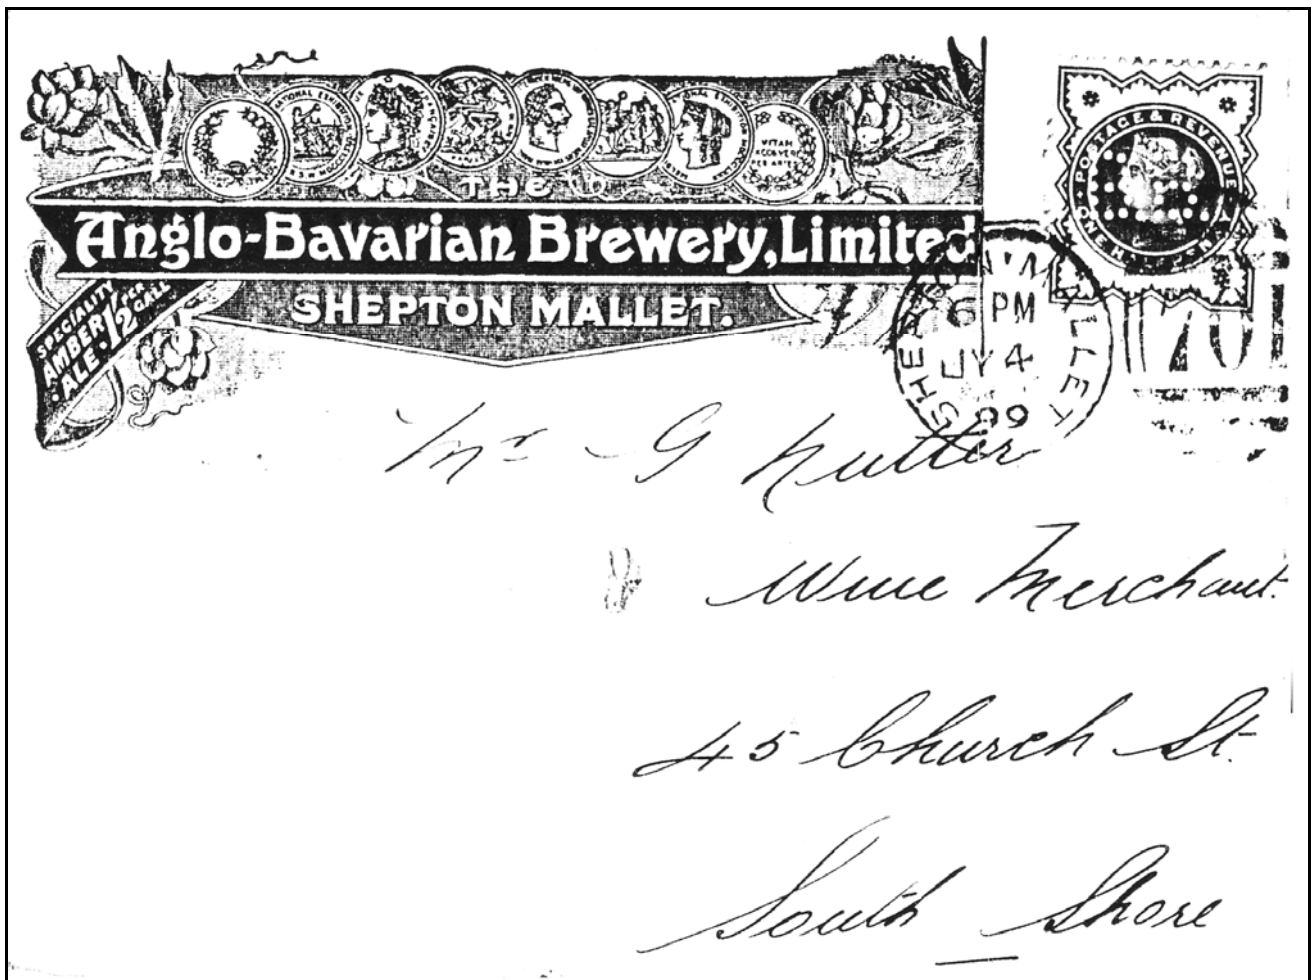 THE
Anglo-Bavarian Brewery, Limited
SHEPTON MALLET.
SPECIALITY
AMBER
ALE
1/2 PER GALL
NATIONAL EXHIBITION
VITAM
POSTAGE & REVENUE
ONE HALFPENNY
SHEPTON MALLET
6 PM
JY 4
99
701
Mr G Nutter
Wine Merchant.
45 Church St.
South Shore